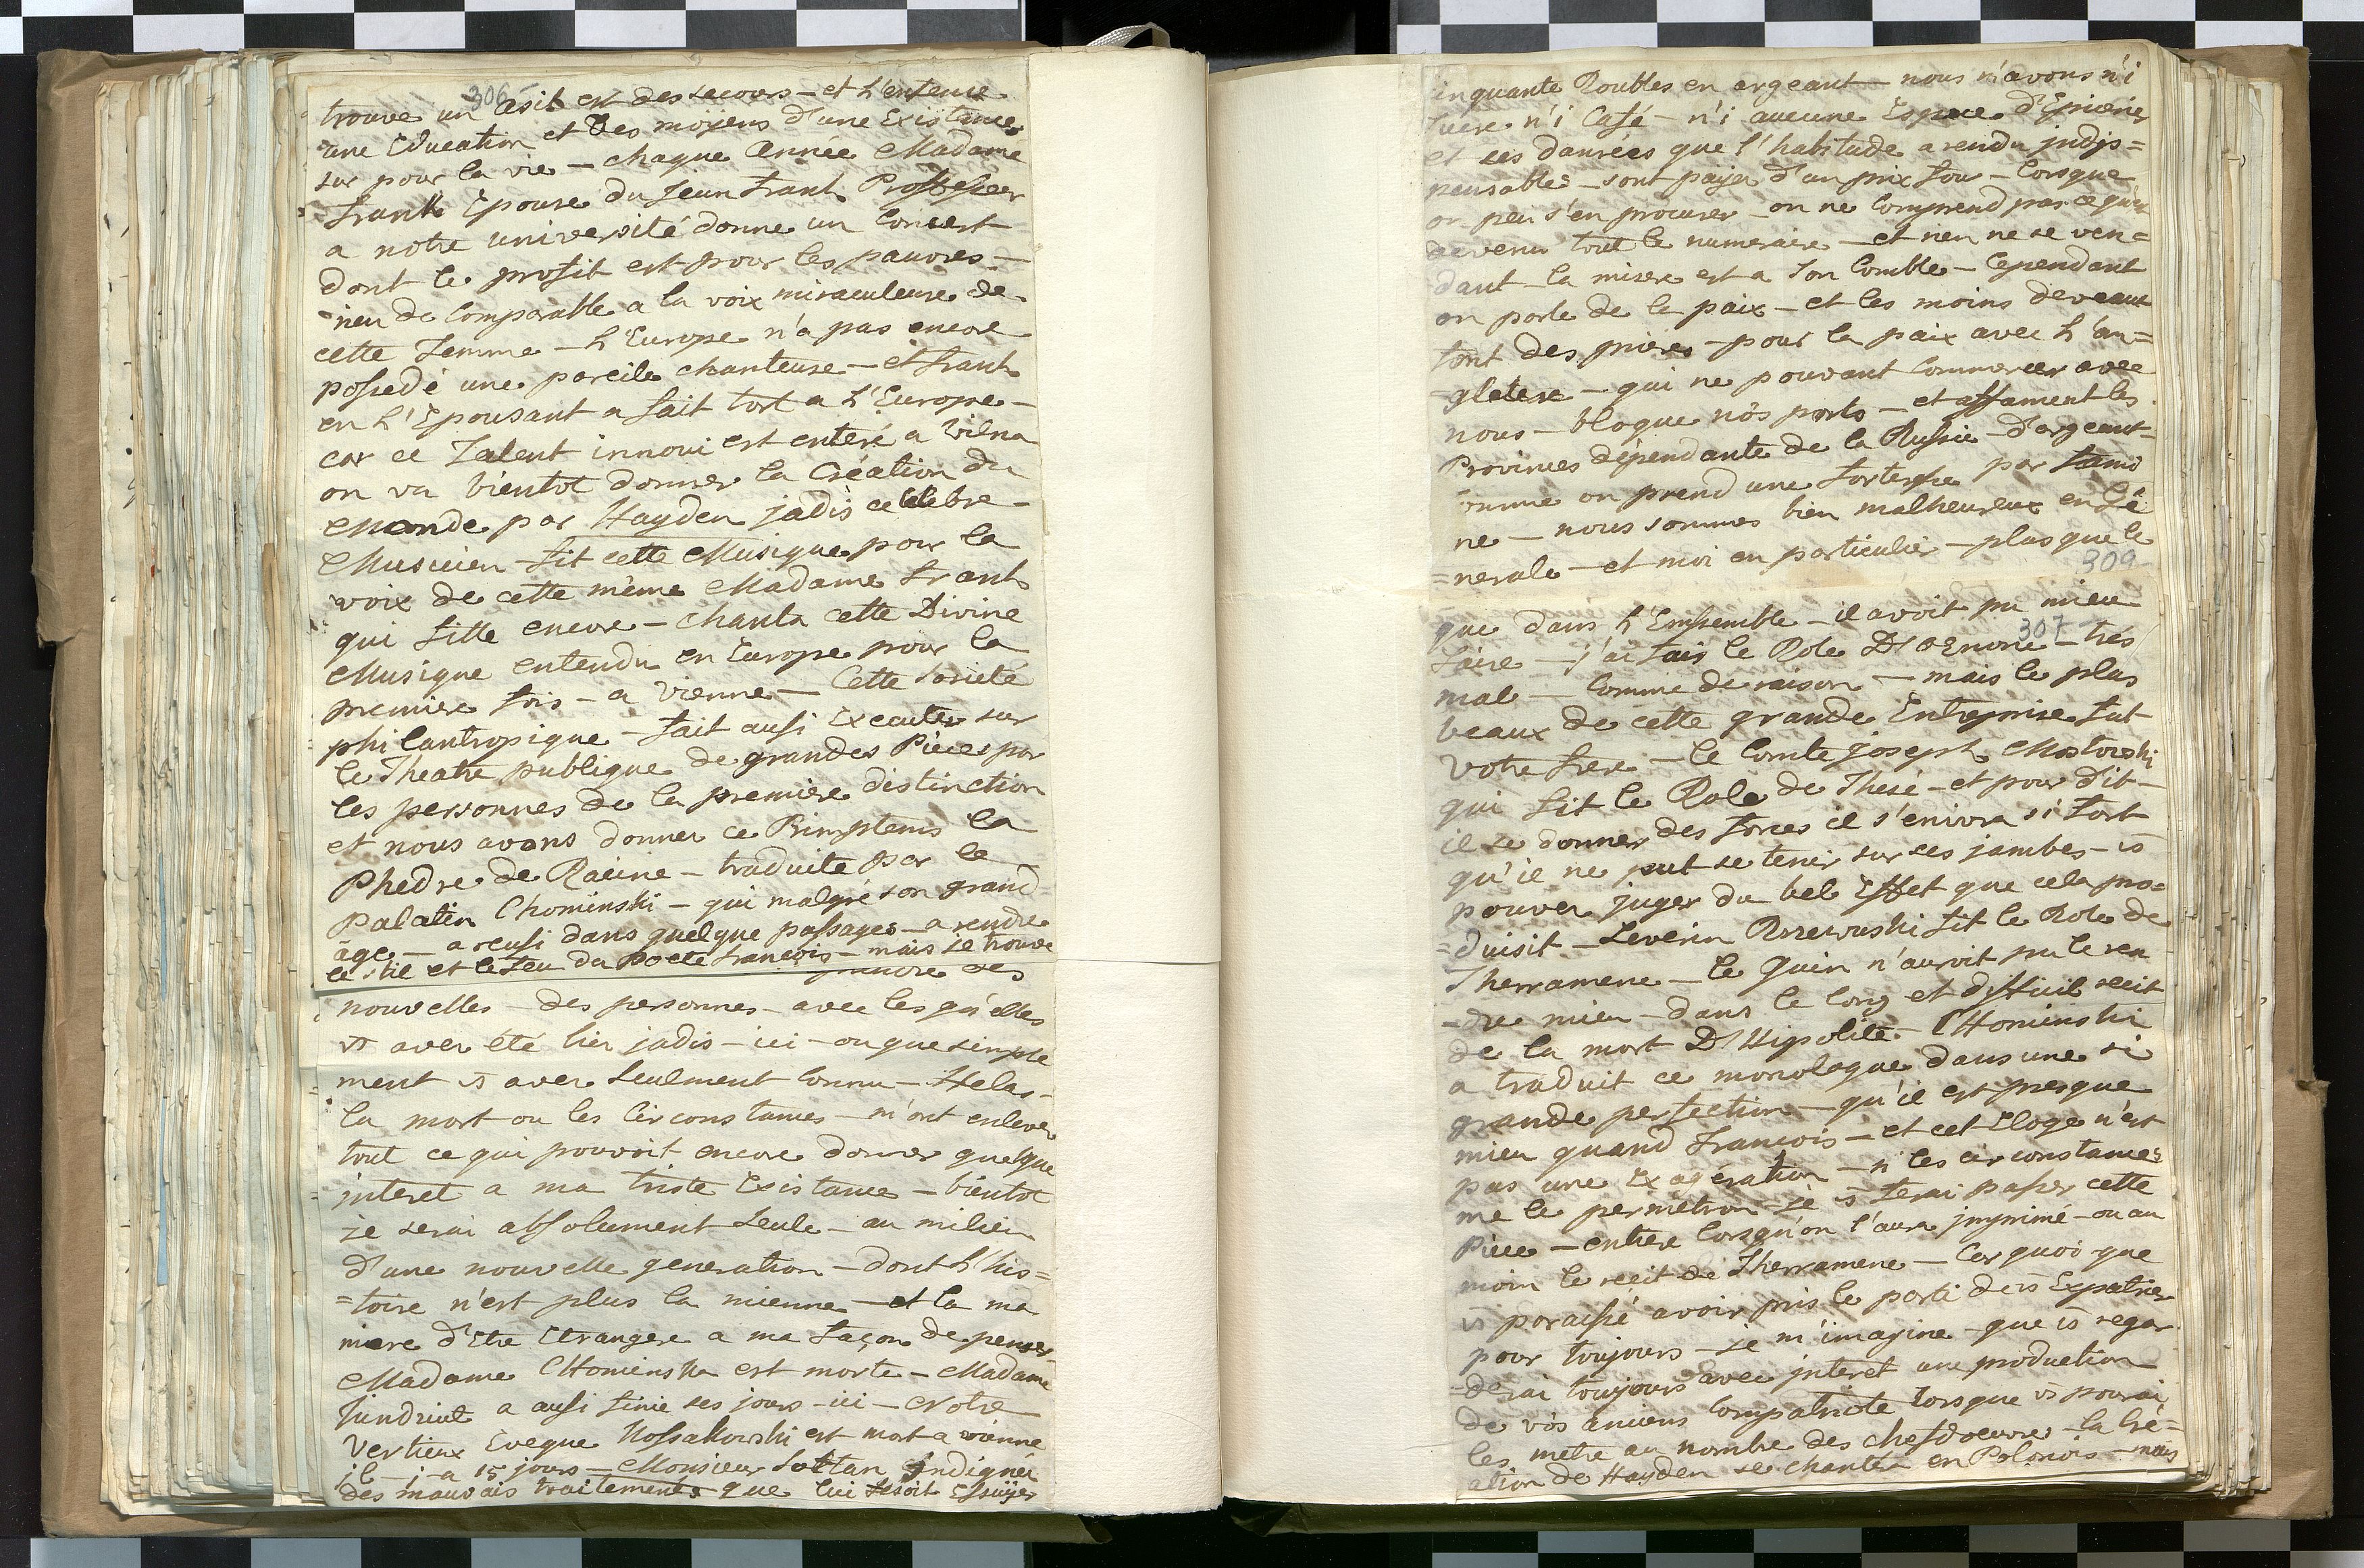 306
trouve un Asil et des secours - et l'enfence
une Education et des moyens d'une Existance
sur pour la vie - chaque Année Madame
frank Epouse du Jeun frank Professeur
a notre université donne un Concert
dont le profit est pour les pauvres -
rien de Comparable a la voix miraculeuse de
cette femme - L'Europe n'a pas encore
possedé une pareile chanteuse - et frank
en l'Epousant a fait tort a L'Europe -
car ce Talent innoui est enteré a Vilna
on va bientot donner la Création du
Monde par Hayden jadis celebre -
Musicien - fit cette Musique pour la
voix de cette même Madame frank
qui fille encore - chanta cette Divine
Musique entendu en Europe pour la
premiere fois - a Vienne - Cette Societé
philantropique - fait aussi Executer sur
le Theatre publique de grandes Pièces par
les personnes de la premiere distinction
et nous avons donner ce Primptems la
Phedre de Racine - traduite par le
Palatin Chominski - qui malgré son grand
âge - a reusi dans quelque passages - a rendre
le stil et le feu du Poete françois - mais je trouve
nouvelles - des personnes - avec les qu'elles
vs aver été lier jadis - ici - ou que simple
ment vs aver seulment Connu - Helas -
la mort ou les Circonstances - m'ont enlever
tout ce qui pouvoit encore donner quelque
interet a ma triste Existance - bientot
je serai absolument seule - au milieu
d'une nouvelle generation - dont l'his=
=toire n'est plus la mienne - et la ma
niere d'Etre Etrangere a ma façon de penser -
Madame CHominska est morte - Madame
Jundziut a aussi finie ses jours - ici - Notre
Vertieux Eveque Kossakowski est mort a vienne
il - j - a 15 jours - Monsieur Soltan Indigner
des mauvais traitements que lui fesoit Essuyer
inquante Roubles en argeant - nous n'avons n'i
sucre n'i Café - n'i aucune Espece d'Epicerie
et ses danrées que l'habitude a rendu indis=
pensable - sont payer d'un prix fou - lorsque
on peu s'en procurer - on ne Comprend pas ce qu'est
devenu tout le numeraire - et rien ne se ven=
dant - la misere est a son Comble - Cependant
on parle de la paix - et les moins deveaux
font des prieres - pour la paix avec L'an=
=gleterre - qui ne pouvant Commercer avec
nous - bloque nôs ports - et affament les
Provinces dépendante de la Russie - d'argeant
omme on prend une forteresse par fami
ne - nous sommes bien malheureux en Gé
=nerale - et moi en particulier - plus que le
309
que dans L'Emsemble - il avoit pu mieu
307
faire - j'ai fais le Role D'OEnone - très
mal - Comme de raison - mais le plus
beaux de cette grande Entreprise fut
Votre frere - le Comte joseph Mostowski
qui fit le Role de Thesé - et pour dit -
il se donner des forces il s'enivra si fort
qu'il ne put se tenir sur ses jambes - vs
pouver juger du bel Effet que cela pro=
=duisit - Severin Rzewuski fit le Role de
Therramene - le Quin n'auroit pu le ren
=dre mieu - dans le long et difficil recit
de la mort D'Hipolite - CHominski
a traduit ce monologue dans une si
grande perfection - qu'il est presque
mieu quand francois - et cet Eloge n'est
pas une Exagération - si les circonstances
me le permetron - je vs ferai passer cette
Pièce - entiere lorsqu'on l'aura imprimé - ou au
moin le recit de Therramene - Car quoi que
vs paraissé avoir pris le parti de vs Expatrier
pour toujours - je m'imagine - que vs regar
=derai toujours avec interet une production
de vôs anciens Compatriote lorsque vs pourai
les metre au nombre des chefdoeuvre - la Cré=
ation de Hayden se chantera en Polonois - mais